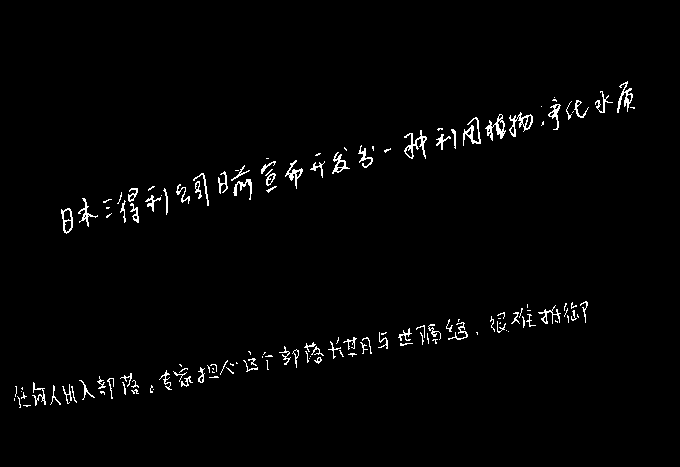 日本三得利公司日前宣布开发出一种利用植物净化水质
任何人出入部落。专家担心这个部落长期与世隔绝，很难抵御